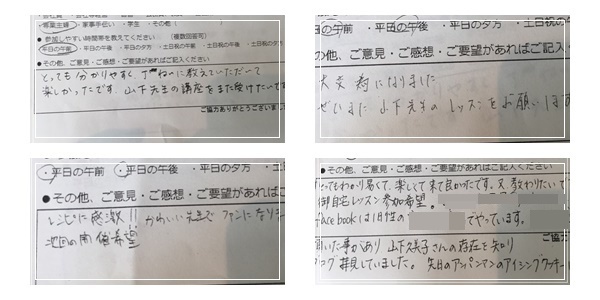 ・専業主婦 ・家事手伝い ・学生 ・その他（
● 参加しやすい時間帯を教えてください （複数回答可）
・平日の午前 ・平日の午後 ・平日の夕方 ・土日祝の午前 ・土日祝の午後 ・土日祝の夕方
●その他、ご意見・ご感想・ご要望があればご記入ください
とっても分かりやすく、丁ねいに教えていただいて
楽しかったです。山下先生の講座をまた受けたいです
ご協力ありがとうございま
日の午前 ・平日の午後 ・平日の夕方 ・土日祝の
の他、ご意見・ご感想・ご要望があればご記入
大変 為になりました
ぜひまた 山下先生の レッスンを お願いします
・平日の午前 ・平日の午後 ・平日の夕方 ・土
●その他、ご意見・ご感想・ご要望があれば
レシピに感激!! かわいい先生で ファンになりま
次回の開催希望
●その他、ご意見・ご感想・ご要望があればご記入ください
とってもわかり易くて、楽しくて来て良かったです。又、教わりたいで
御自宅レッスン参加希望。
facebookは旧姓の でやっています。
ご協力
聞いた事があり 山下久美子さんの存在を知り
ブログ 拝見していました。 先日のアンパンマンのアイシングクッキー